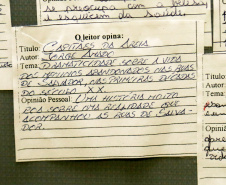 se preocupa com a
esquecem da saúde.
O leitor opina:
Título: CAPITÃES DA AREIA
Autor: JORGE AMADO
Tema: DRAMATICIDADE SOBRE A VIDA
DOS MENINOS ABANDONADOS NAS RUAS
DE SALVADOR, NAS PRIMEIRAS DÉCADAS
DO SÉCULO XX.
Opinião Pessoal: UMA HISTÓRIA MUITO
RICA SOBRE UMA REALIDADE QUE
ACOMPANHOU AS RUAS DE SALVA-
DOR.
Título:
Autor:
Tema:
Opiniã